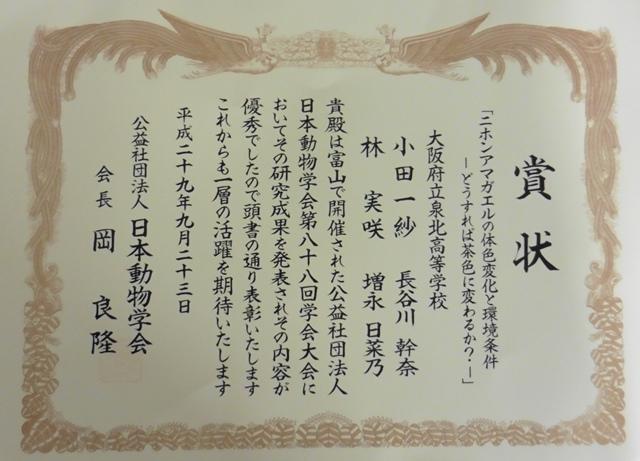 賞状
「ニホンアマガエルの体色変化と環境条件
―どうすれば茶色に変わるか?―」
大阪府立泉北高等学校
小田一紗 長谷川幹奈
林実咲 増永日菜乃
貴殿は富山で開催された公益社団法人
日本動物学会第八十八回学会大会に
おいてその研究成果を発表されその内容が
優秀でしたので頭書の通り表彰いたします
これからも一層の活躍を期待いたします
平成二十九年九月二十三日
公益社団法人 日本動物学会
会長 岡良隆